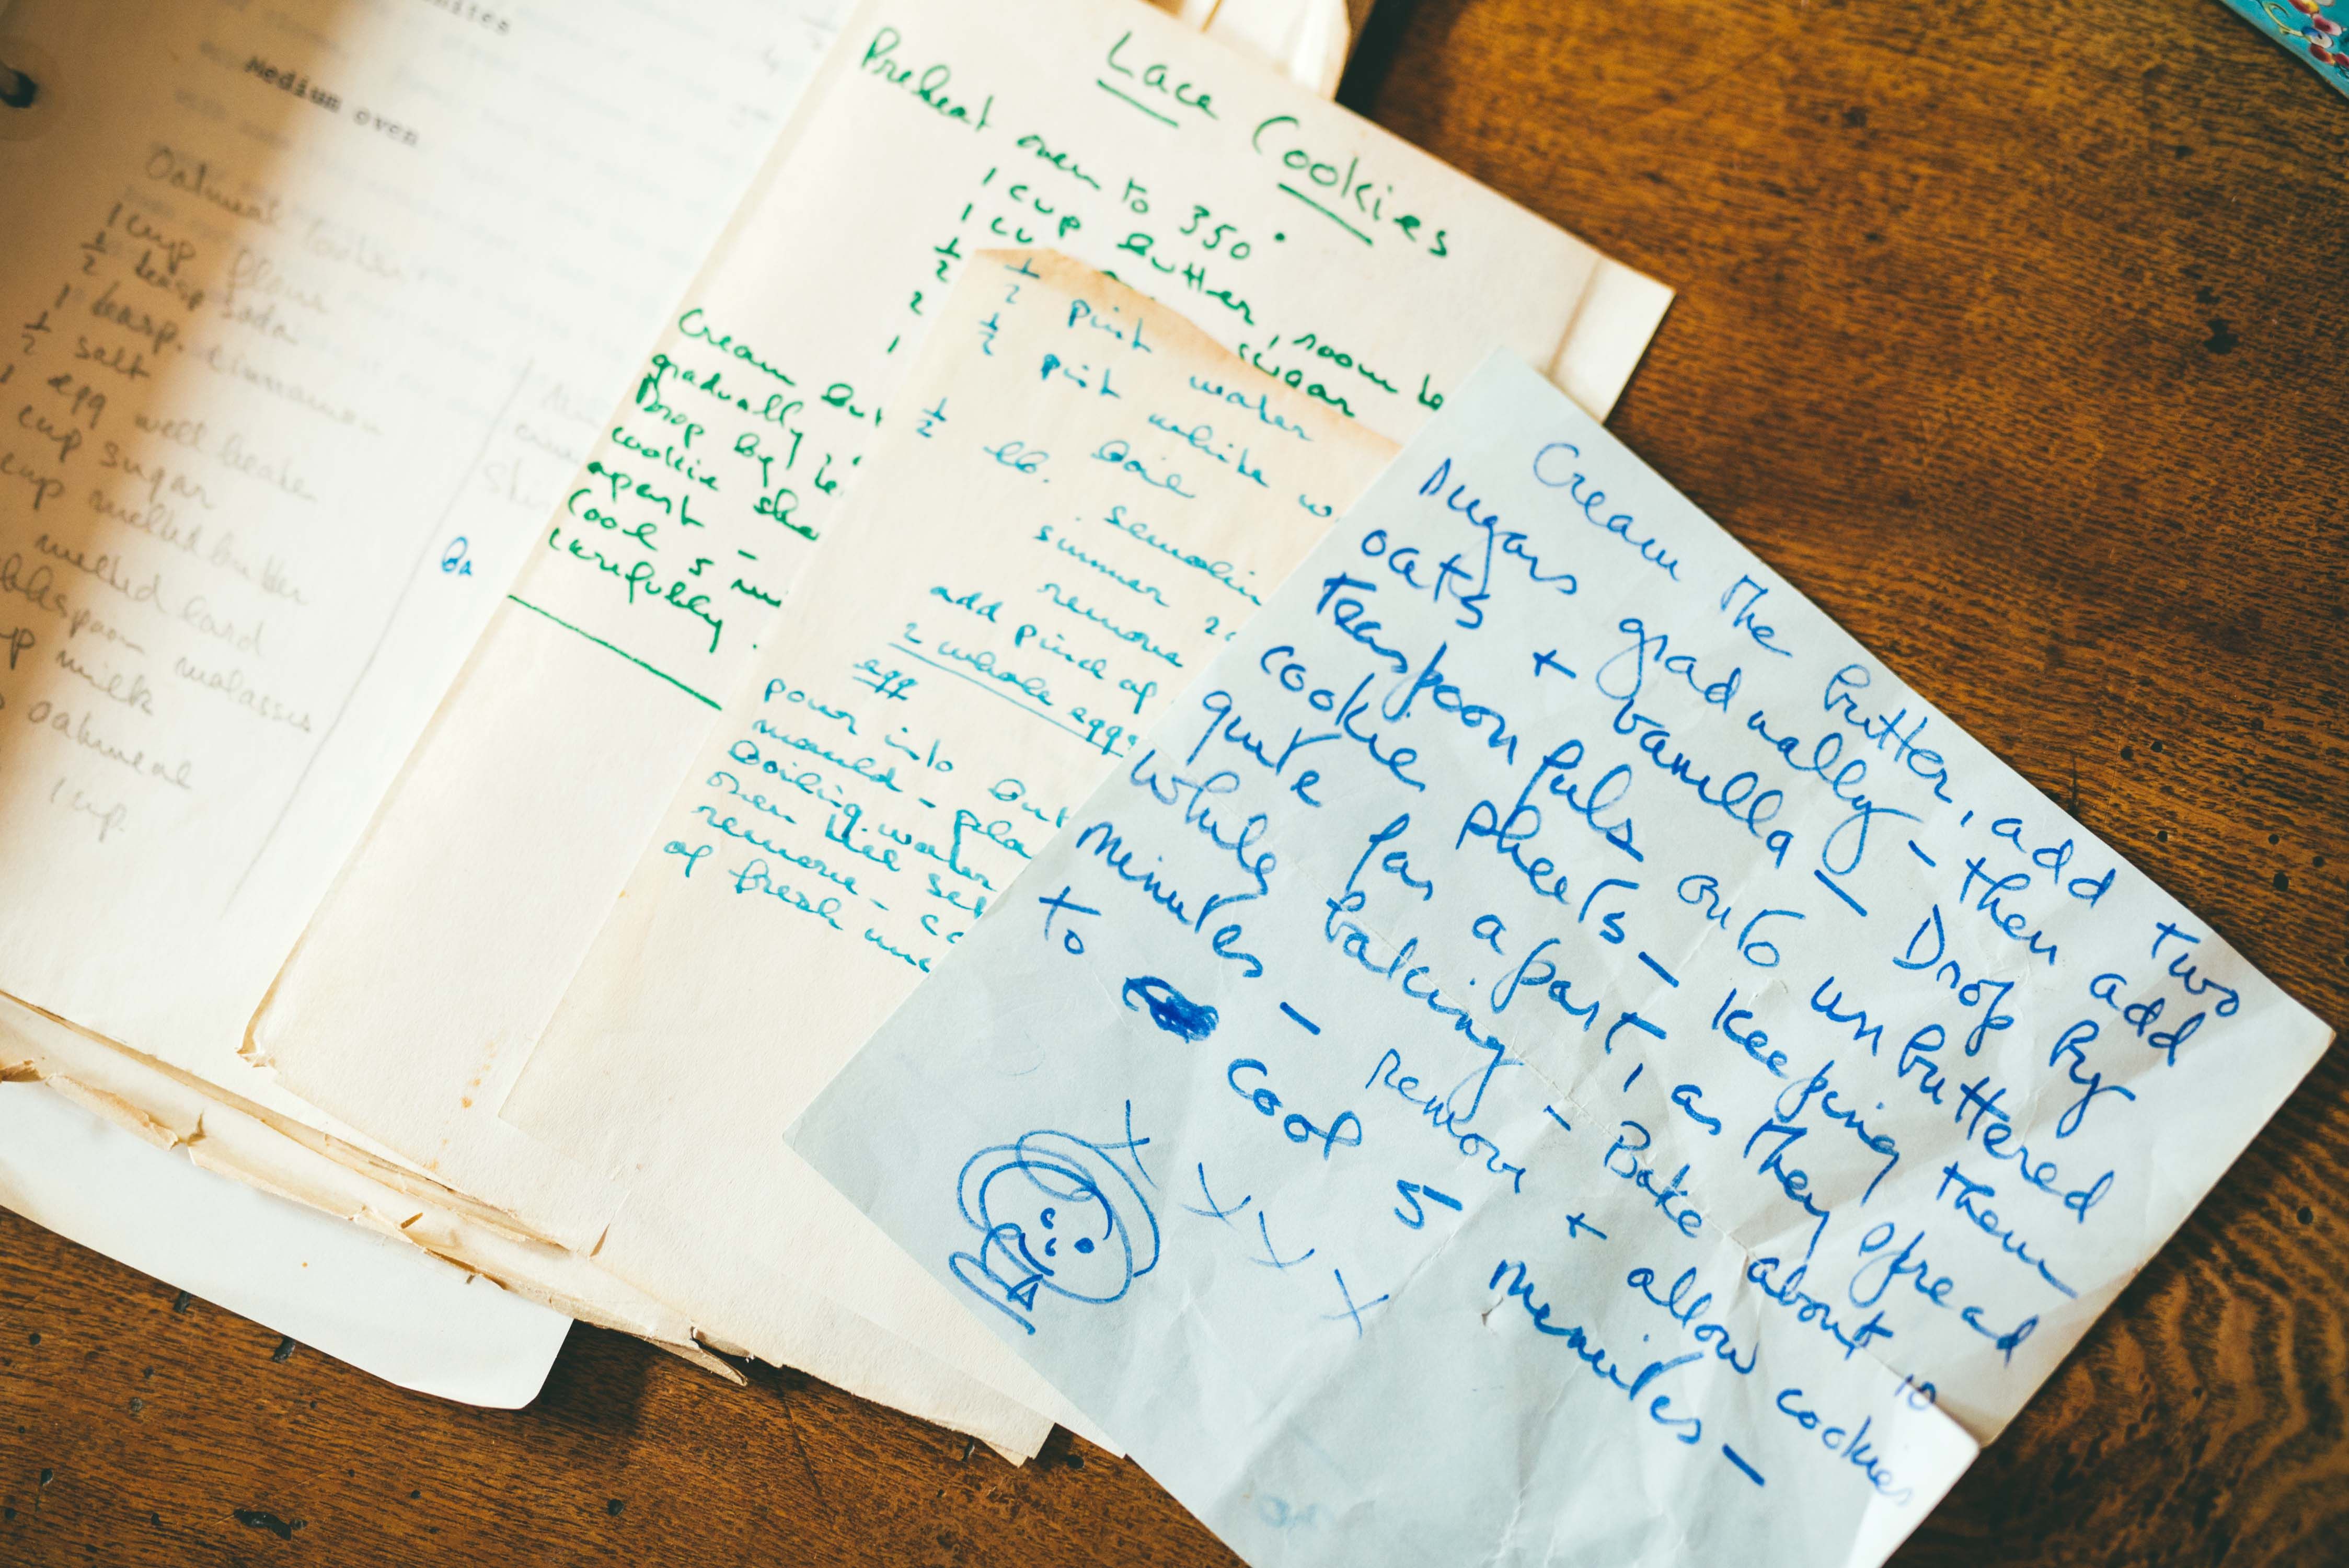 Medium oven
Oatmeal Cookies
1 cup flour
½ teasp soda
1 teasp. cinnamon
½ salt
1 egg well beaten
cup sugar
cup melted butter
melted lard
molasses
milk
oatmeal
1 cup.
Lace Cookies
Preheat oven to 350°
1 cup butter, room te
1 cu sugar
½
2
1
Cream but
gradually,
Drop by te
cookie she
apart –
Cool 5 m
carefully.
½ pint water
½ pint white w
boil
½ lb. semolin
simmer 2
remove
add pinch of
2 whole eggs
egg
pour into but
mould – pla
boiling water
oven till set
remove – co
of fresh
Cream the butter, add two
sugars gradually – then add
oats + vanilla – Drop by
teaspoonfuls onto unbuttered
cookie sheets – keeping them
quite far apart, as they spread
while baking – Bake about 10
minutes – remove + allow cookies
to cool 5 minutes –
X X X X